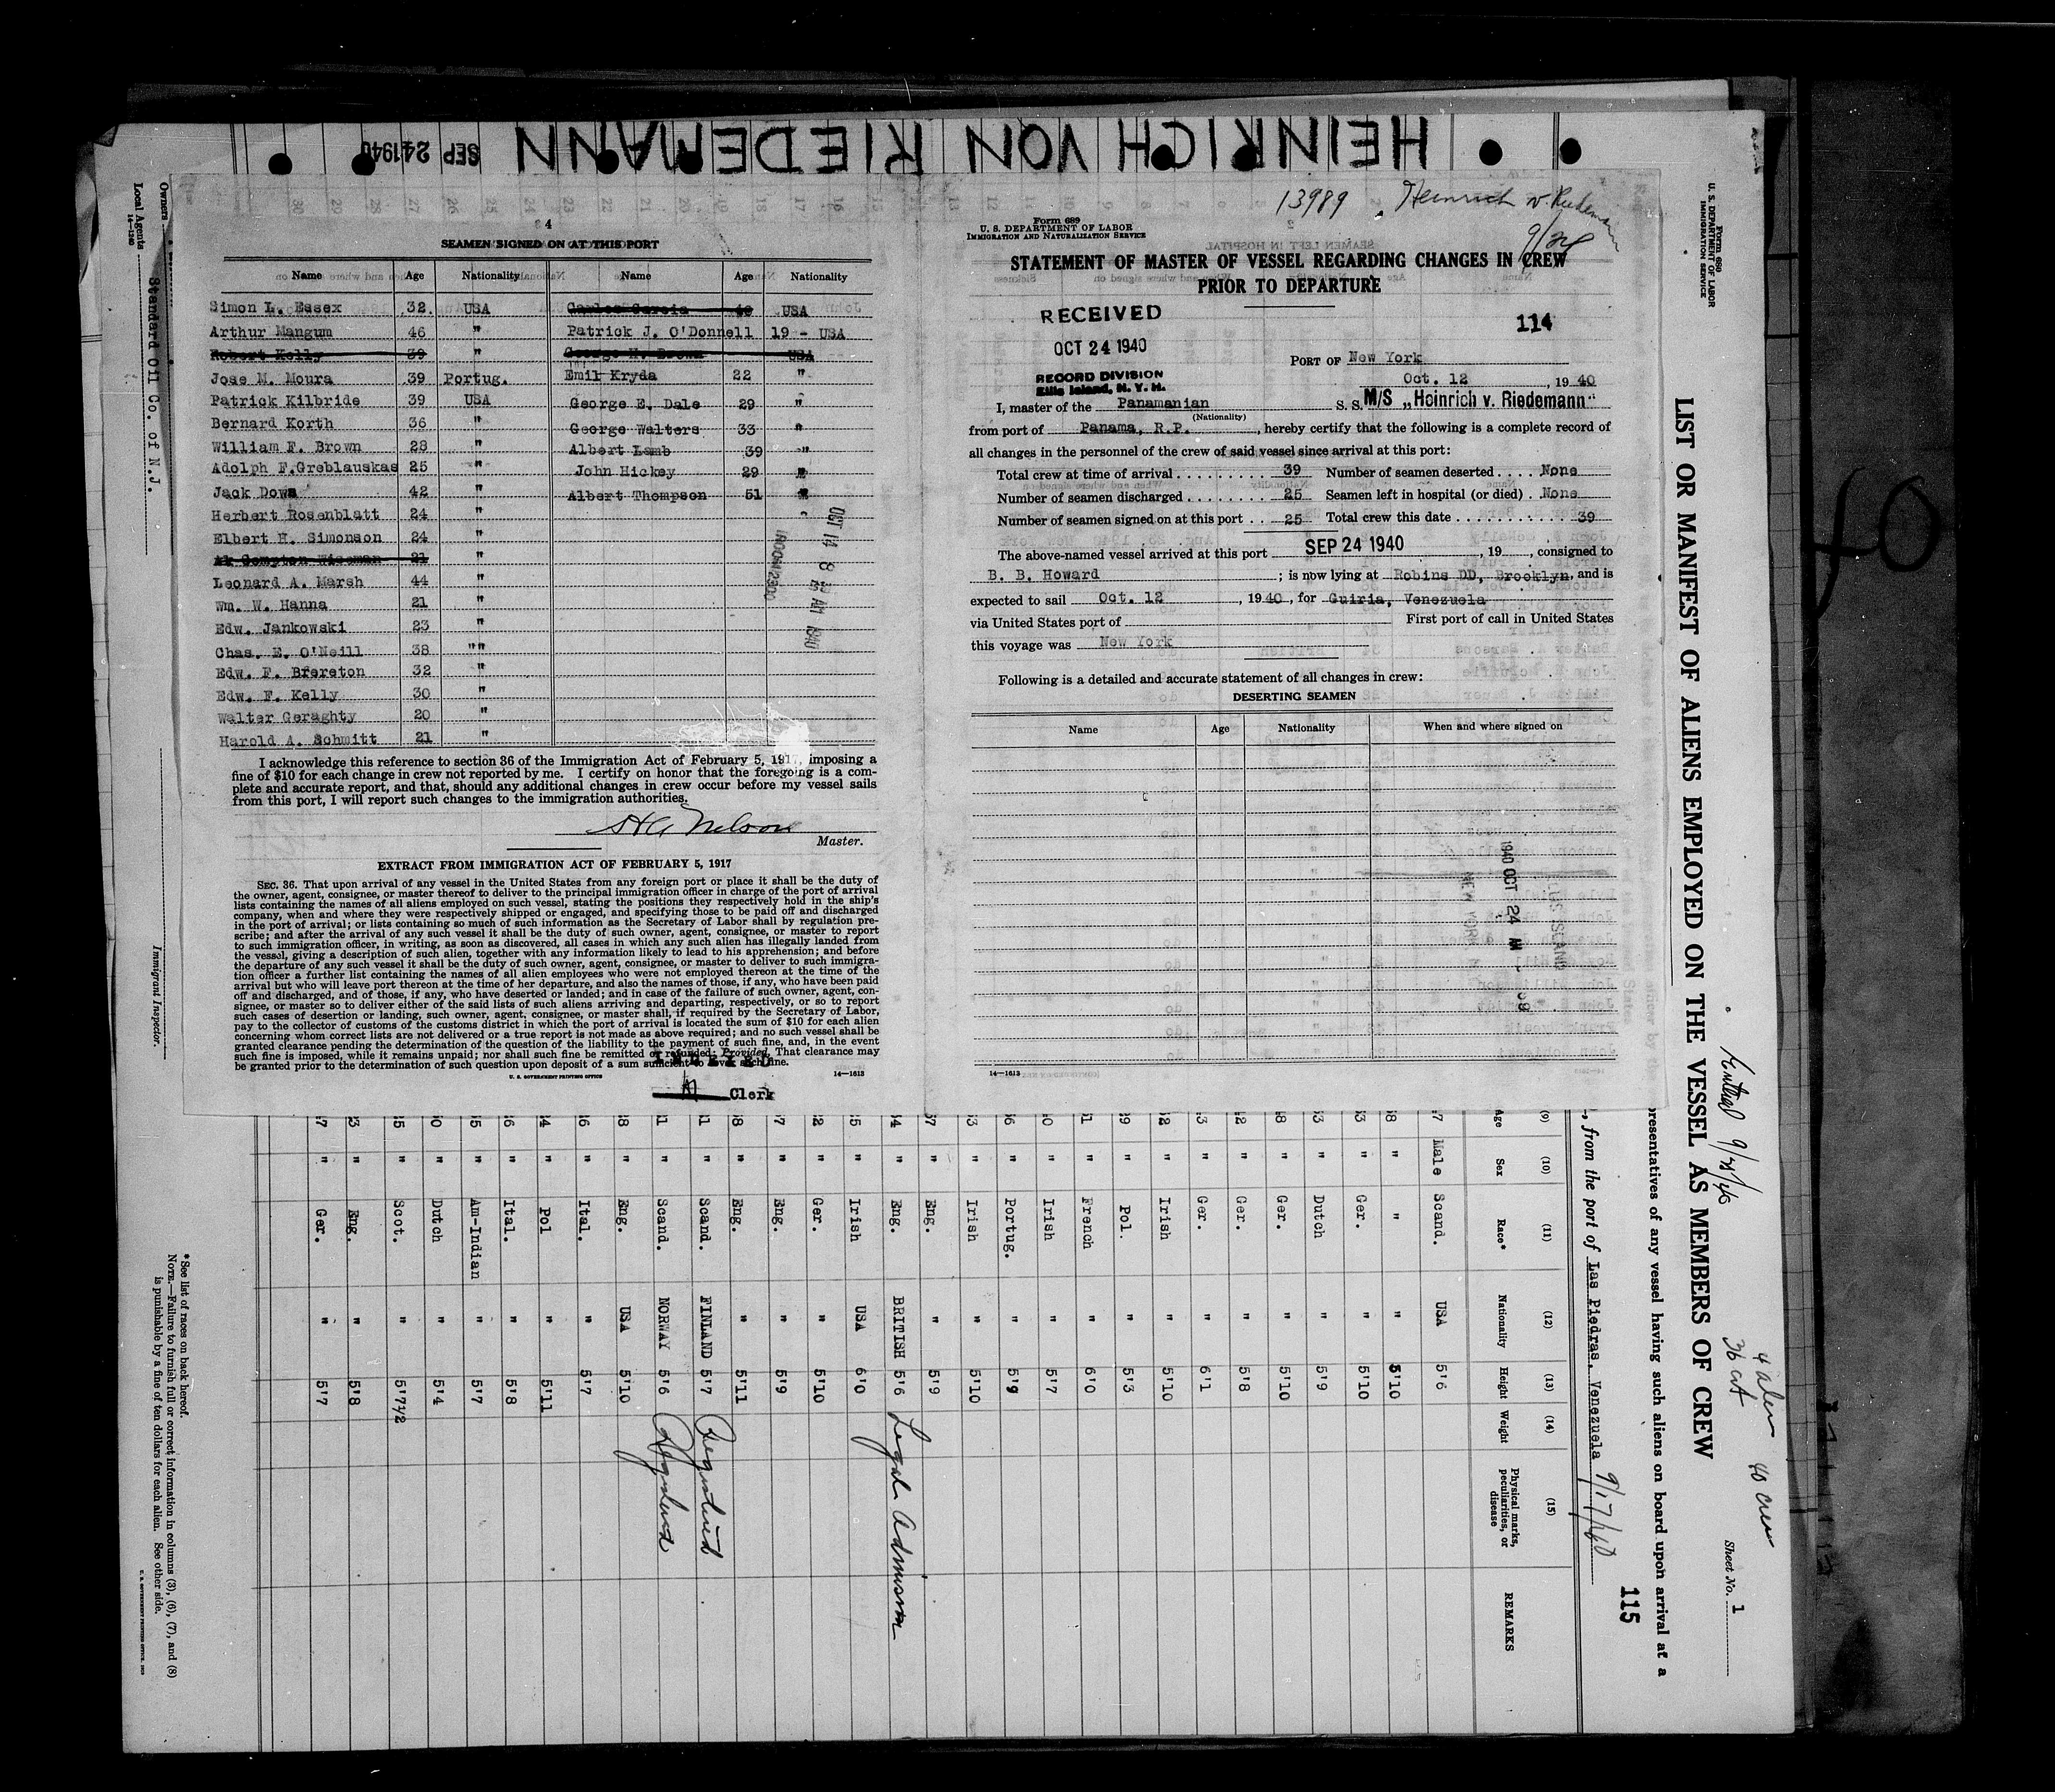 HEINRICH VON RIEDEMANN
SEP 24 1940
4
SEAMEN SIGNED ON AT THIS PORT
Name Age Nationality Name Age Nationality
Simon L. Essex 32 USA Carlos Garcia 40 USA
Arthur Mangum 46 " Patrick J. O'Donnell 19 - USA
Robert Kelly 39 " George H. Brown USA
Jose M. Moura 39 Portug. Emil Kryda 22 "
Patrick Kilbride 39 USA George E. Dale 29 "
Bernard Korth 36 " George Walters 33 "
William F. Brown 28 " Albert Lamb 39 "
Adolph F.Greblauskas 25 " John Hickey 29 "
Jack Dowa 42 " Albert Thompson 51 "
Herbert Rosenblatt 24 "
Elbert H. Simonson 24 "
Compton Wiseman 21 "
Leonard A. Marsh 44 "
Wm. W. Hanna 21 "
Edw. Jankowski 23 "
Chas. E. O'Neill 38 ""
Edw. F. Brereton 32 "
Edw. F. Kelly 30 "
Walter Geraghty 20 "
Harold A. Schmitt 21 "
OCT 14 8 AM 1940
ROOM 2300
I acknowledge this reference to section 36 of the Immigration Act of February 5, 1917, imposing a
fine of $10 for each change in crew not reported by me. I certify on honor that the foregoing is a com-
plete and accurate report, and that, should any additional changes in crew occur before my vessel sails
from this port, I will report such changes to the immigration authorities.
Nelson
Master.
EXTRACT FROM IMMIGRATION ACT OF FEBRUARY 5, 1917
SEC. 36. That upon arrival of any vessel in the United States from any foreign port or place it shall be the duty of
the owner, agent, consignee, or master thereof to deliver to the principal immigration officer in charge of the port of arrival
lists containing the names of all aliens employed on such vessel, stating the positions they respectively hold in the ship's
company, when and where they were respectively shipped or engaged, and specifying those to be paid off and discharged
in the port of arrival; or lists containing so much of such information as the Secretary of Labor shall by regulation pre-
scribe; and after the arrival of any such vessel it shall be the duty of such owner, agent, consignee, or master to report
to such immigration officer, in writing, as soon as discovered, all cases in which any such alien has illegally landed from
the vessel, giving a description of such alien, together with any information likely to lead to his apprehension; and before
the departure of any such vessel it shall be the duty of such owner, agent, consignee, or master to deliver to such immigra-
tion officer a further list containing the names of all alien employees who were not employed thereon at the time of the
arrival but who will leave port thereon at the time of her departure, and also the names of those, if any, who have been paid
off and discharged, and of those, if any, who have deserted or landed; and in case of the failure of such owner, agent, con-
signee, or master so to deliver either of the said lists of such aliens arriving and departing, respectively, or so to report
such cases of desertion or landing, such owner, agent, consignee, or master shall, if required by the Secretary of Labor,
pay to the collector of customs of the customs district in which the port of arrival is located the sum of $10 for each alien
concerning whom correct lists are not delivered or a true report is not made as above required; and no such vessel shall be
granted clearance pending the determination of the question of the liability to the payment of such fine, and, in the event
such fine is imposed, while it remains unpaid; nor shall such fine be remitted or refunded: Provided, That clearance may
be granted prior to the determination of such question upon deposit of a sum sufficient to cover such fine.
U. S. GOVERNMENT PRINTING OFFICE 14—1613
INDEXED
Clerk
13989 Heinrich v. Riedemann
9/24
Form 689
U. S. DEPARTMENT OF LABOR
IMMIGRATION AND NATURALIZATION SERVICE
STATEMENT OF MASTER OF VESSEL REGARDING CHANGES IN CREW
PRIOR TO DEPARTURE
RECEIVED
OCT 24 1940
RECORD DIVISION
Ellis Island, N. Y. H.
114
PORT OF New York
Oct. 12, 1940
I, master of the Panamanian S. S. M/S „Heinrich v. Riedemann"
(Nationality)
from port of Panama, R.P., hereby certify that the following is a complete record of
all changes in the personnel of the crew of said vessel since arrival at this port:
Total crew at time of arrival 39 Number of seamen deserted None
Number of seamen discharged 25 Seamen left in hospital (or died) None
Number of seamen signed on at this port 25 Total crew this date 39
The above-named vessel arrived at this port SEP 24 1940, 19, consigned to
B. B. Howard; is now lying at Robins DD, Brooklyn, and is
expected to sail Oct. 12, 1940, for Guiria, Venezuela
via United States port of First port of call in United States
this voyage was New York
Following is a detailed and accurate statement of all changes in crew:
DESERTING SEAMEN
Name Age Nationality When and where signed on
1940 OCT 24 AM
ELLIS ISLAND
NEW YORK
14—1613
Form 680
U. S. DEPARTMENT OF LABOR
IMMIGRATION SERVICE
LIST OR MANIFEST OF ALIENS EMPLOYED ON THE VESSEL AS MEMBERS OF CREW
Entered 9/25/40
4 alien
36 cit
40 crew
Sheet No. 1
presentatives of any vessel having such aliens on board upon arrival at a
, from the port of Las Piedras, Venezuela 9/17/40
115
(9) (10) (11) (12) (13) (14) (15)
Age Sex Race* Nationality Height Weight Physical marks, peculiarities, or disease REMARKS
7 Male Scand. USA 5'6
8 " " " 5'10
3 " Ger. " 5'10
3 " Dutch " 5'9
8 " Ger. " 5'10
2 " Ger. " 5'8
3 " Ger. " 6'1
2 " Irish " 5'10
9 " Pol. " 5'3
1 " French " 6'0
0 " Irish " 5'7
6 " Portug. " 5'9
3 " Irish " 5'10
7 " Eng. " 5'9
4 " Eng. BRITISH 5'6 Legal Admission
5 " Irish USA 6'0
2 " Ger. " 5'10
7 " Eng. " 5'9
8 " Eng. " 5'11
1 " Scand. FINLAND 5'7 Registered
1 " Scand. NORWAY 5'6 Registered
8 " Eng. USA 5'10
6 " Ital. " 5'7
4 " Pol " 5'11
6 " Ital. " 5'8
5 " Am-Indian " 5'7
0 " Dutch " 5'4
5 " Scot. " 5'7½
3 " Eng. " 5'8
7 " Ger. " 5'7
*See list of races on back hereof.
NOTE.—Failure to furnish full or correct information in columns (3), (6), (7), and (8)
is punishable by a fine of ten dollars for each alien. See other side.
Owners
Standard Oil Co. of N.J.
Local Agents
14—1240
Immigrant Inspector.
40